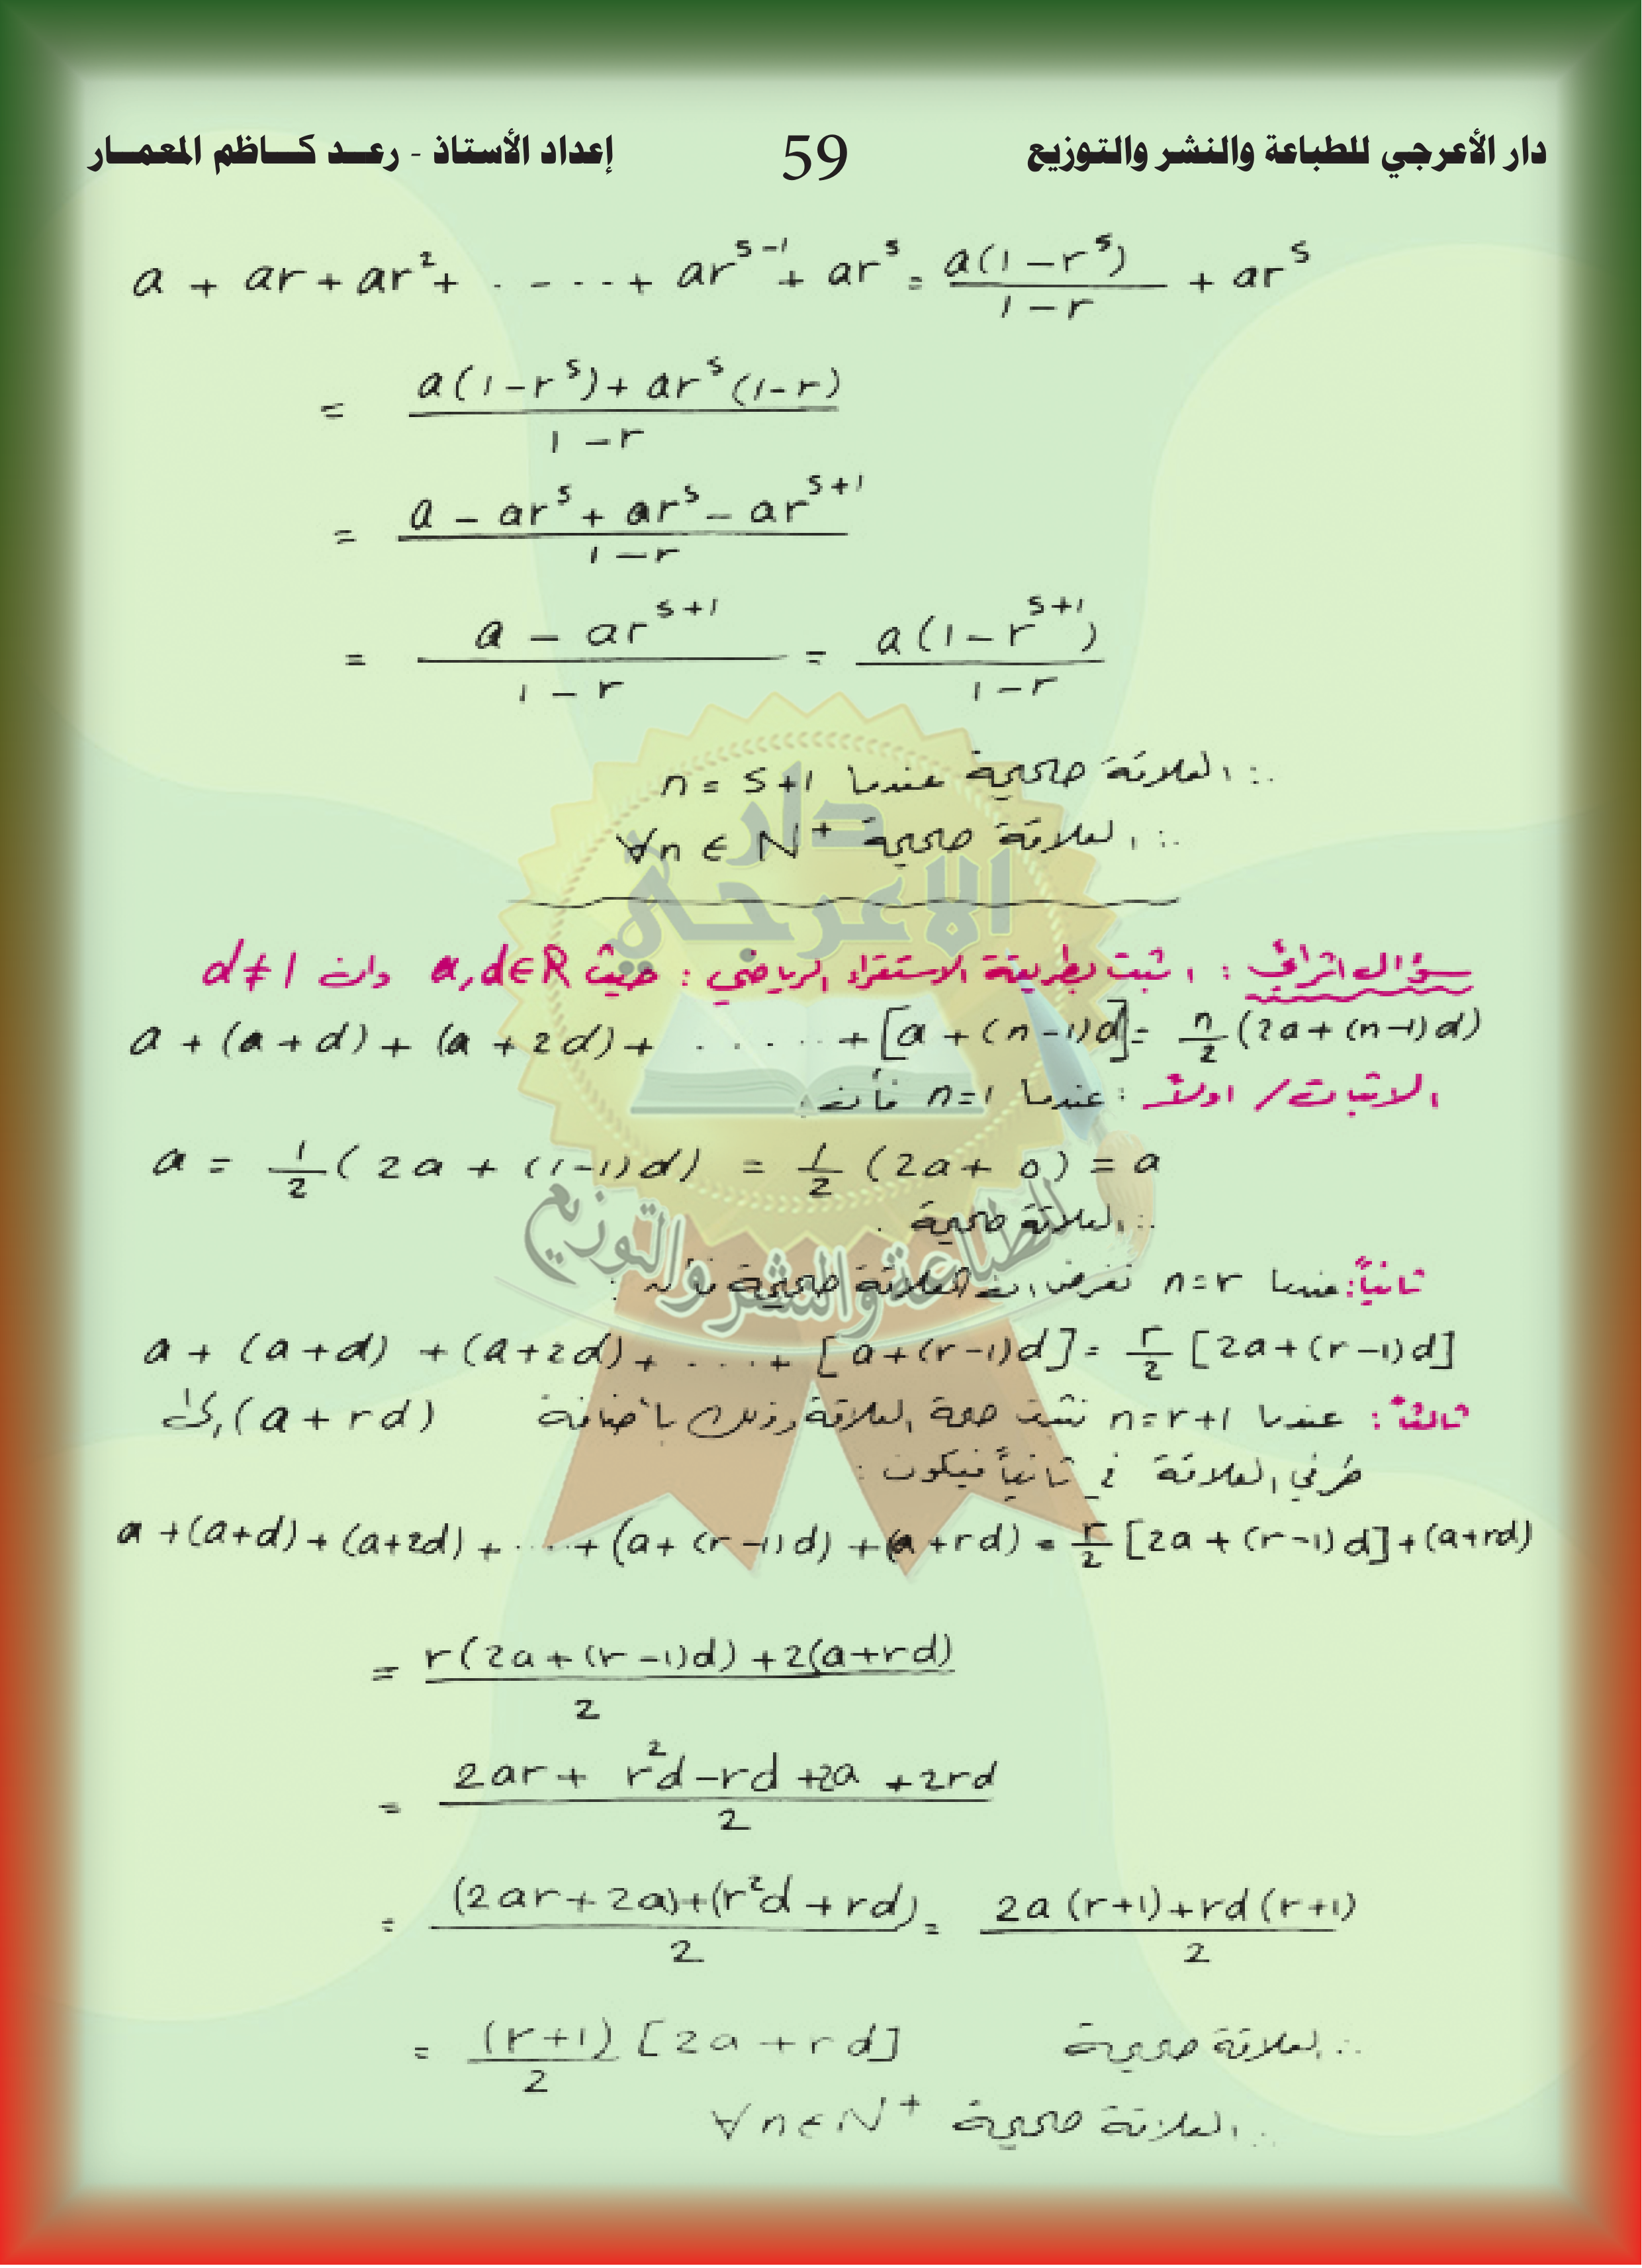 دار الأعرجي للطباعة والنشر والتوزيع 59 إعداد الأستاذ - رعد كاظم المعمار
a + ar + ar² + . - . . . + ar^(s-1) + ar^s = a(1-r^s)/(1-r) + ar^s
= (a(1-r^s) + ar^s(1-r))/(1-r)
= (a - ar^s + ar^s - ar^(s+1))/(1-r)
= (a - ar^(s+1))/(1-r) = a(1-r^(s+1))/(1-r)
∴ العلاقة صحيحة عندما n = s+1
∴ العلاقة صحيحة ∀n ∈ N⁺
دار
الاعرجي
سؤال اثرائي : اثبت بطريقة الاستقراء الرياضي : حيث a,d∈R وان d≠1
a + (a+d) + (a+2d) + . . . . . + [a+(n-1)d] = n/2 (2a+(n-1)d)
الاثبات / اولاً : عندما n=1 فأن :
a = 1/2 (2a + (1-1)d) = 1/2 (2a + 0) = a
∴ العلاقة صحيحة .
للطباعة والنشر والتوزيع
ثانياً : عندما n=r نفرض ان العلاقة صحيحة فأنه :
a + (a+d) + (a+2d) + . . . + [a+(r-1)d] = r/2 [2a+(r-1)d]
ثالثاً : عندما n=r+1 نثبت صحة العلاقة وذلك بأضافة (a+rd) الى
طرفي العلاقة في ثانياً فيكون :
a + (a+d) + (a+2d) + . . . . + (a+(r-1)d) + (a+rd) = r/2 [2a+(r-1)d] + (a+rd)
= (r(2a+(r-1)d) + 2(a+rd))/2
= (2ar + r²d - rd + 2a + 2rd)/2
= ((2ar+2a)+(r²d+rd))/2 = (2a(r+1)+rd(r+1))/2
= (r+1)/2 [2a+rd] ∴ العلاقة صحيحة
∴ العلاقة صحيحة ∀n∈N⁺